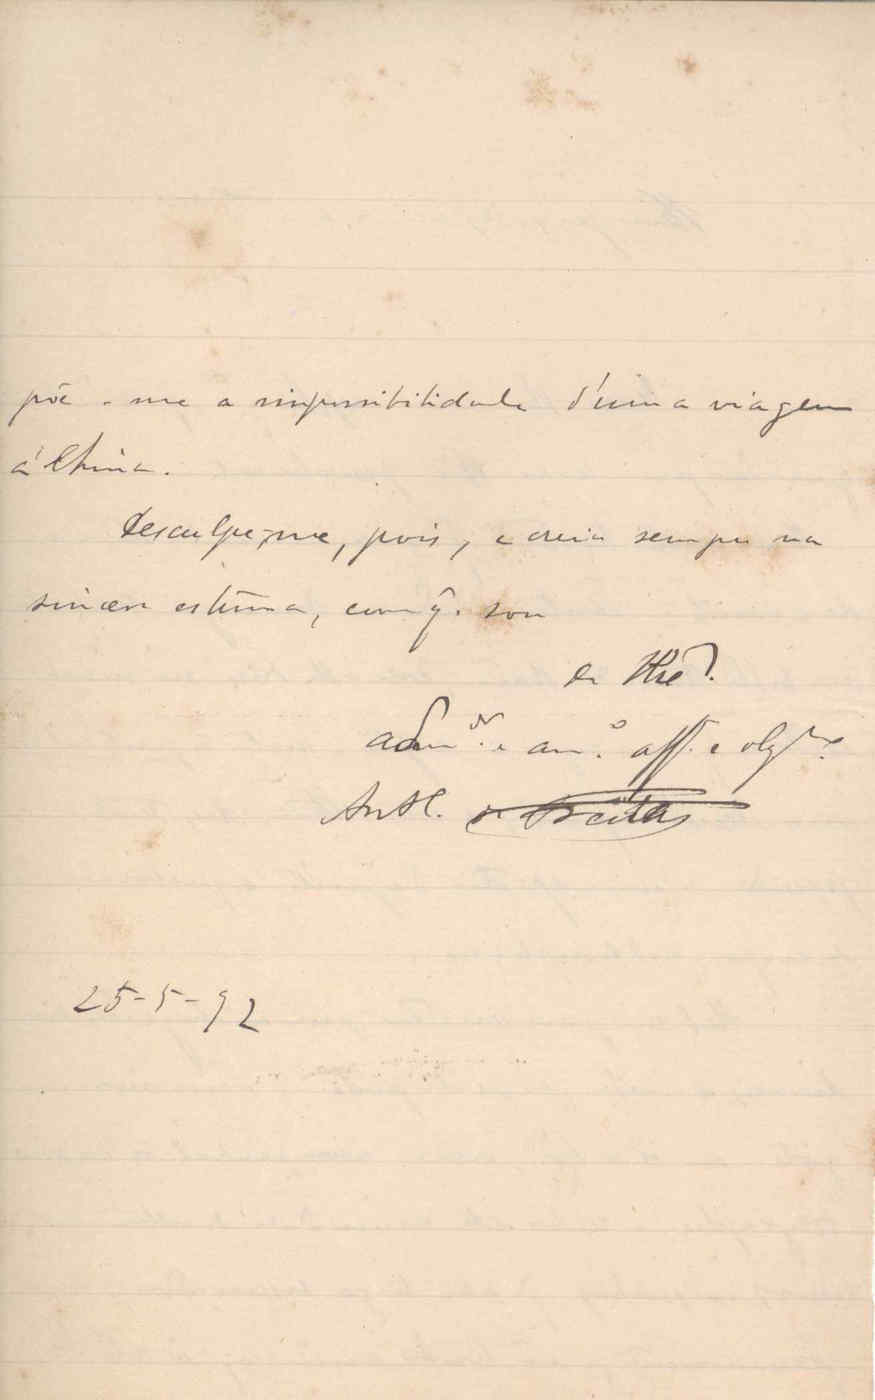 põe-me a impossibilidade d'uma viagem
á China.
Desculpe-me, pois, e creia sempre na
sincera estima, com q. sou
de
adm.or e am.º aff. e obg.
Ant. de Freitas
25-5-92